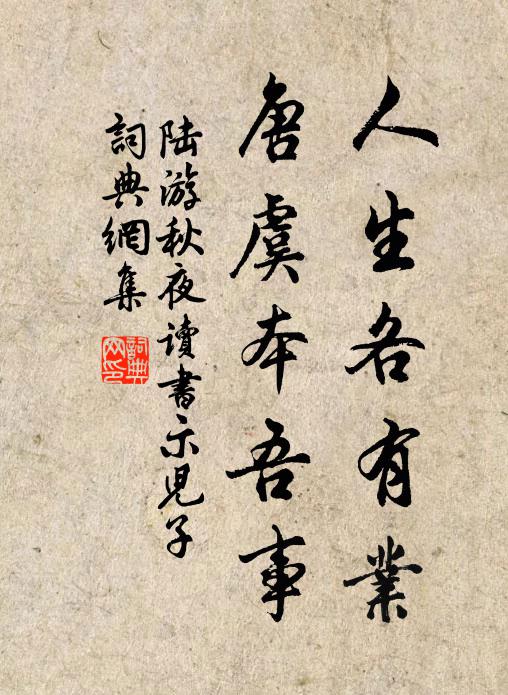 人生各有業
唐虞本吾事
陸游秋夜讀書示児子
詞典網集
詞典网印